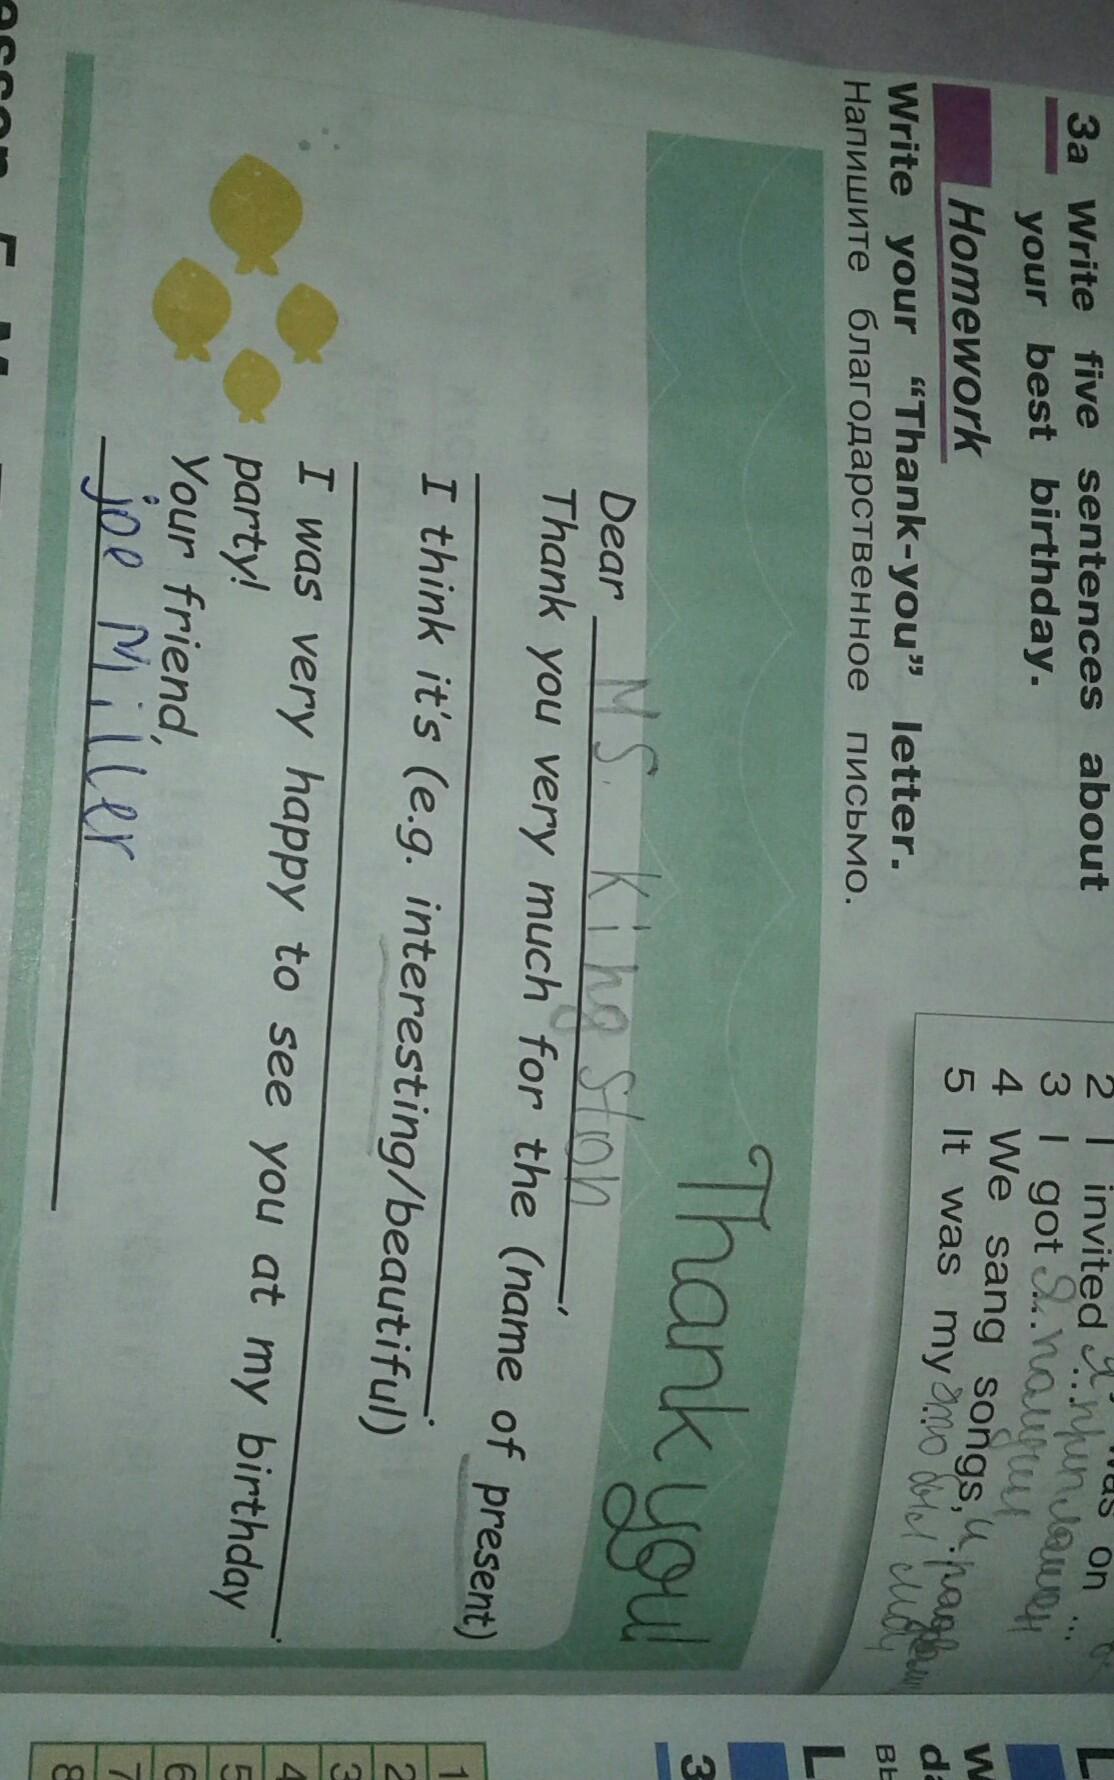 3a Write five sentences about
your best birthday.
Homework
Write your “Thank-you” letter.
Напишите благодарственное письмо.
2 I invited
3 I got
4 We sang songs,
5 It was my
Thank you!
Dear Ms. Kingston,
Thank you very much for the (name of present)
I think it's (e.g. interesting/beautiful)
I was very happy to see you at my birthday
party!
Your friend,
joe Miller
3
1
2
3
4
5
6
7
8